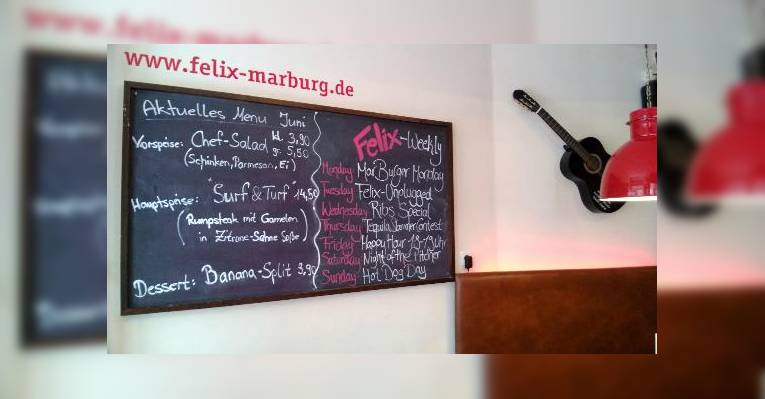 www.felix-marburg.de
Aktuelles Menu Juni
Vorspeise: Chef-Salad kl. 3,90
gr. 5,50
(Schinken, Parmesan, Ei)
Hauptspeise: "Surf & Turf" 14,50
(Rumpsteak mit Garnelen
in Zitrone-Sahne Soße)
Dessert: Banana-Split 3,90
Felix-Weekly
Monday MarBurger Monday
Tuesday Felix-Unplugged
Wednesday Ribs Special
Thursday Tequila Contest
Friday Happy Hour Uhr
Saturday Night of the Pitcher
Sunday Hot Dog Day